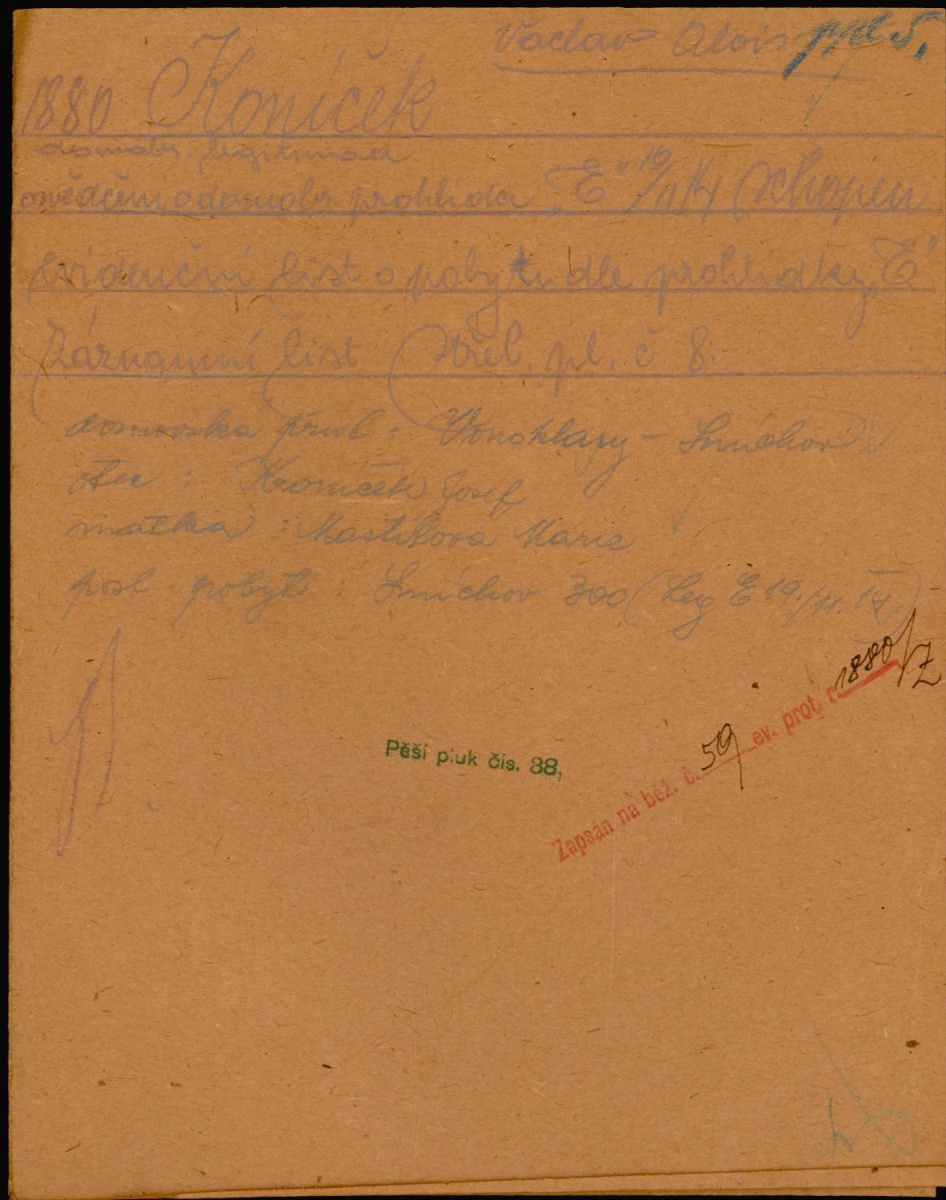 Václav Alois
1880 Koníček
domobr. legitimací
osvědčení o domobr. prohlídce „E" 19/11 14 schopen
Evidenční list o pobytu dle prohlídky „E"
Záznamní list Střel. pl. č 8.
domovská přísl: Vonoklasy - Smíchov
otec : Koníček Josef
matka : Mastilová Marie
posl. pobyt : Smíchov 300 (Leg E 19./11. 14.)
Pěší pluk čís. 38,
Zapsán na běž. č. 59 ev. prot. r. 1880/Z